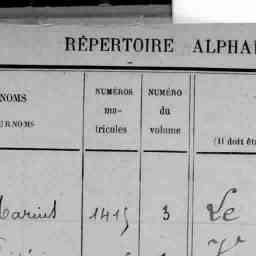 RÉPERTOIRE ALPHA
NOMS
URNOMS
NUMÉROS
ma-
tricules
NUMÉRO
du
volume
(Il doit êt
Marius 1415 3 Le